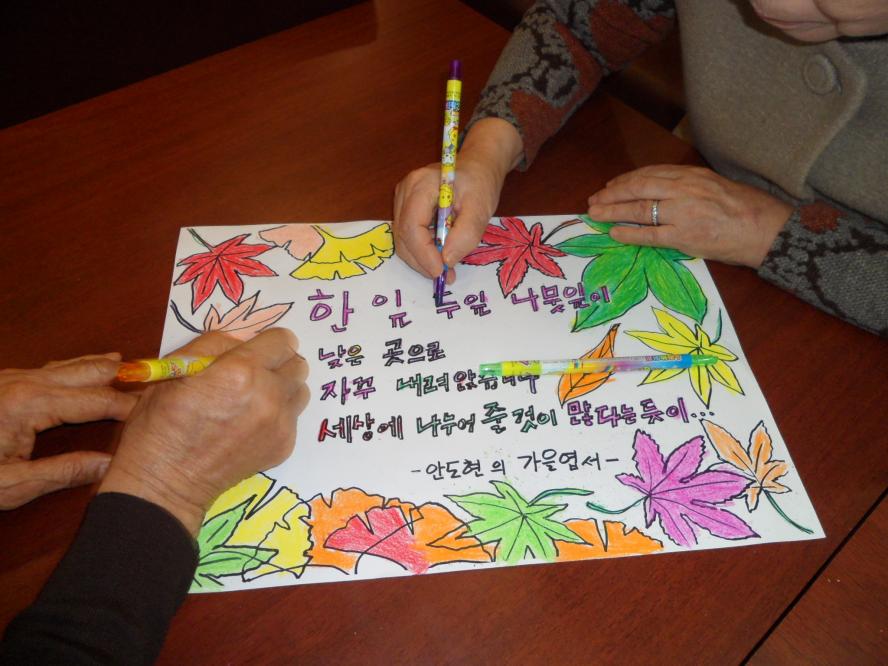 한 잎 두잎 나뭇잎이
낮은 곳으로
자꾸 내려앉습니다
세상에 나누어 줄 것이 많다는듯이...
- 안도현의 가을엽서 -